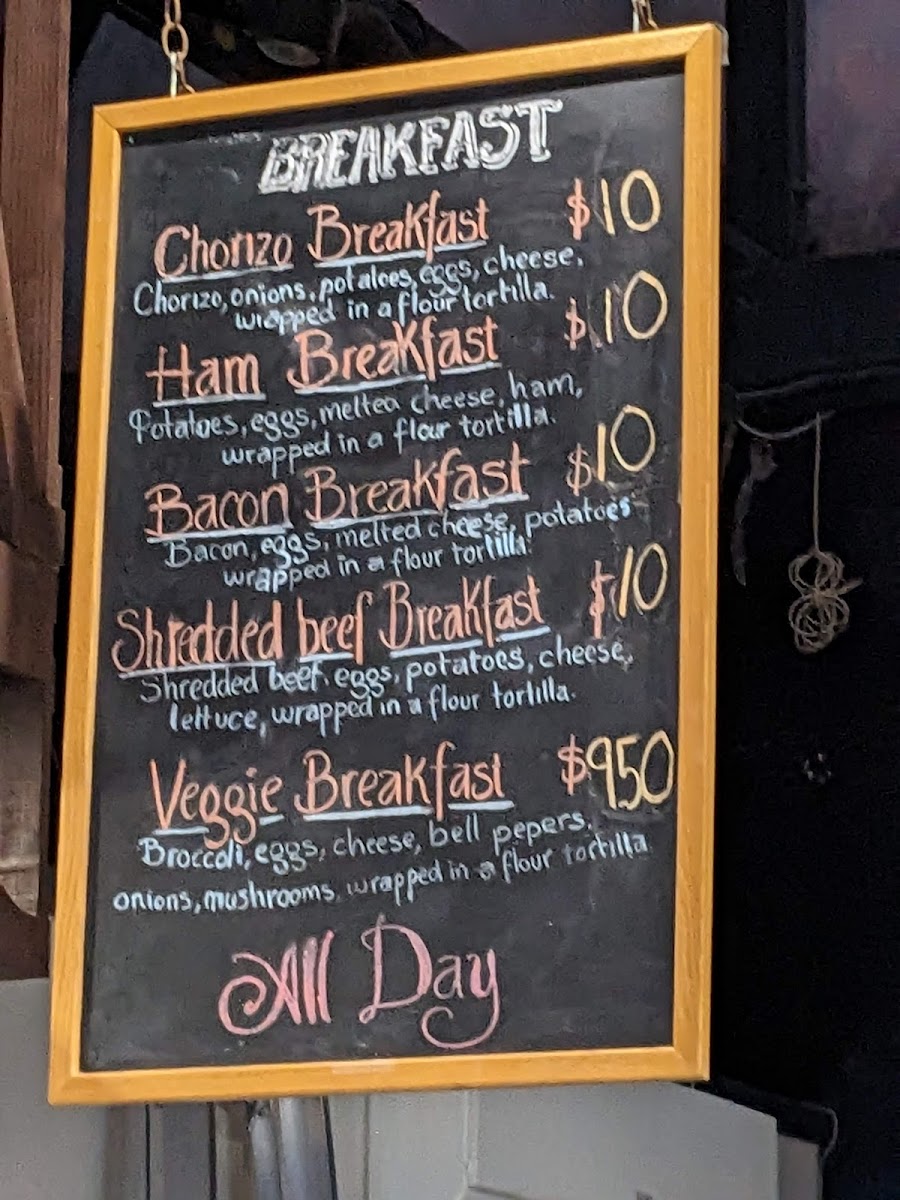 BREAKFAST
Chorizo Breakfast $10
Chorizo, onions, potatoes, eggs, cheese,
wrapped in a flour tortilla.
Ham Breakfast $10
Potatoes, eggs, melted cheese, ham,
wrapped in a flour tortilla.
Bacon Breakfast $10
Bacon, eggs, melted cheese, potatoes
wrapped in a flour tortilla.
Shredded beef Breakfast $10
Shredded beef, eggs, potatoes, cheese,
lettuce, wrapped in a flour tortilla.
Veggie Breakfast $950
Broccoli, eggs, cheese, bell pepers,
onions, mushrooms, wrapped in a flour tortilla
All Day